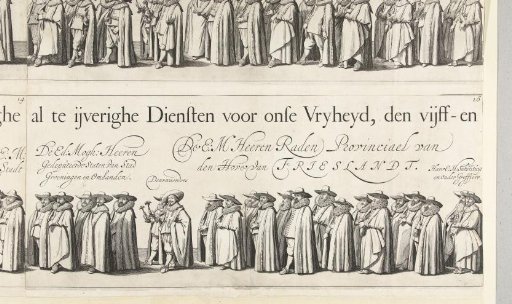 14
16
ghe al te ijverighe Dienſten voor onſe Vryheyd, den vijff-en
E. M.
Stadt
De Ed. Mogh. Heeren
Gedeputeerde Staten van Stad
Groeningen en Omlanden.
Deurwaerders
De E. M. Heeren Raden Provinciael van
den Hove van FRIESLANDT.
en